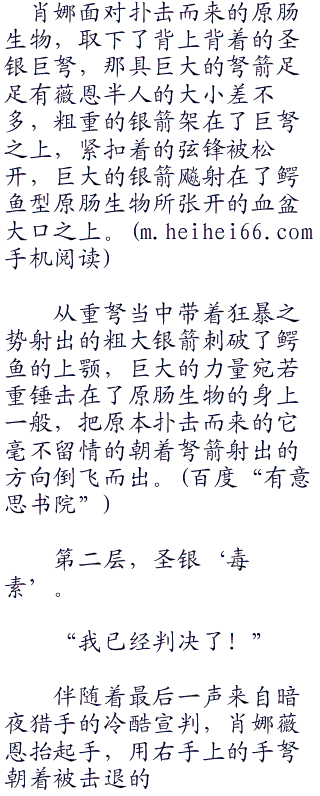 肖娜面对扑击而来的原肠
生物，取下了背上背着的圣
银巨弩，那具巨大的弩箭足
足有薇恩半人的大小差不
多，粗重的银箭架在了巨弩
之上，紧扣着的弦锋被松
开，巨大的银箭飚射在了鳄
鱼型原肠生物所张开的血盆
大口之上。(m.heihei66.com
手机阅读)
从重弩当中带着狂暴之
势射出的粗大银箭刺破了鳄
鱼的上颚，巨大的力量宛若
重锤击在了原肠生物的身上
一般，把原本扑击而来的它
毫不留情的朝着弩箭射出的
方向倒飞而出。(百度“有意
思书院”)
第二层，圣银‘毒
素’。
“我已经判决了！”
伴随着最后一声来自暗
夜猎手的冷酷宣判，肖娜薇
恩抬起手，用右手上的手弩
朝着被击退的